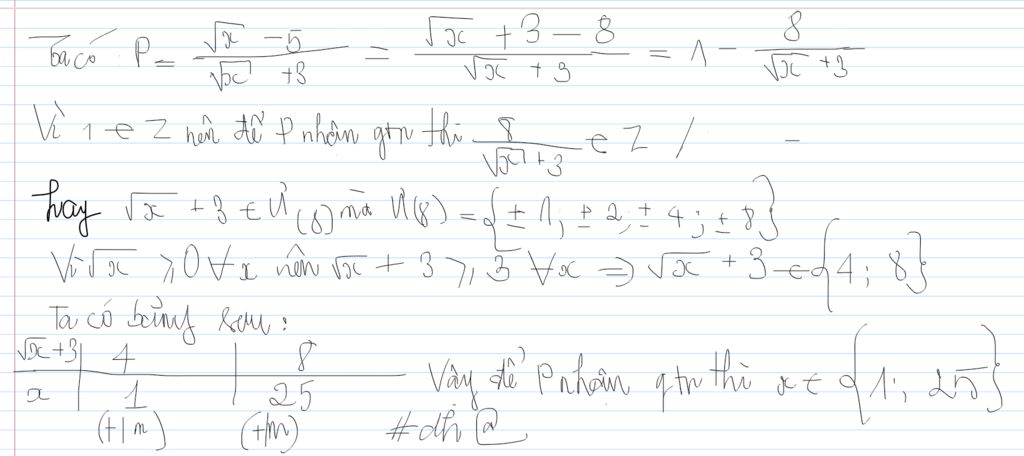 Ta có P = \frac{\sqrt{x} - 5}{\sqrt{x} + 3} = \frac{\sqrt{x} + 3 - 8}{\sqrt{x} + 3} = 1 - \frac{8}{\sqrt{x} + 3}
Vì 1 ∈ Z nên để P nhận gtn thì \frac{8}{\sqrt{x} + 3} ∈ Z /
hay \sqrt{x} + 3 ∈ Ư(8) mà Ư(8) = {± 1; ± 2; ± 4; ± 8}
Vì \sqrt{x} ⩾ 0 ∀x nên \sqrt{x} + 3 ⩾ 3 ∀x ⇒ \sqrt{x} + 3 ∈ {4; 8}
Ta có bảng sau:
\sqrt{x} + 3 | 4 | 8
x | 1 | 25
(t/m) (t/m)
Vậy để P nhận gtn thì x ∈ {1; 25}